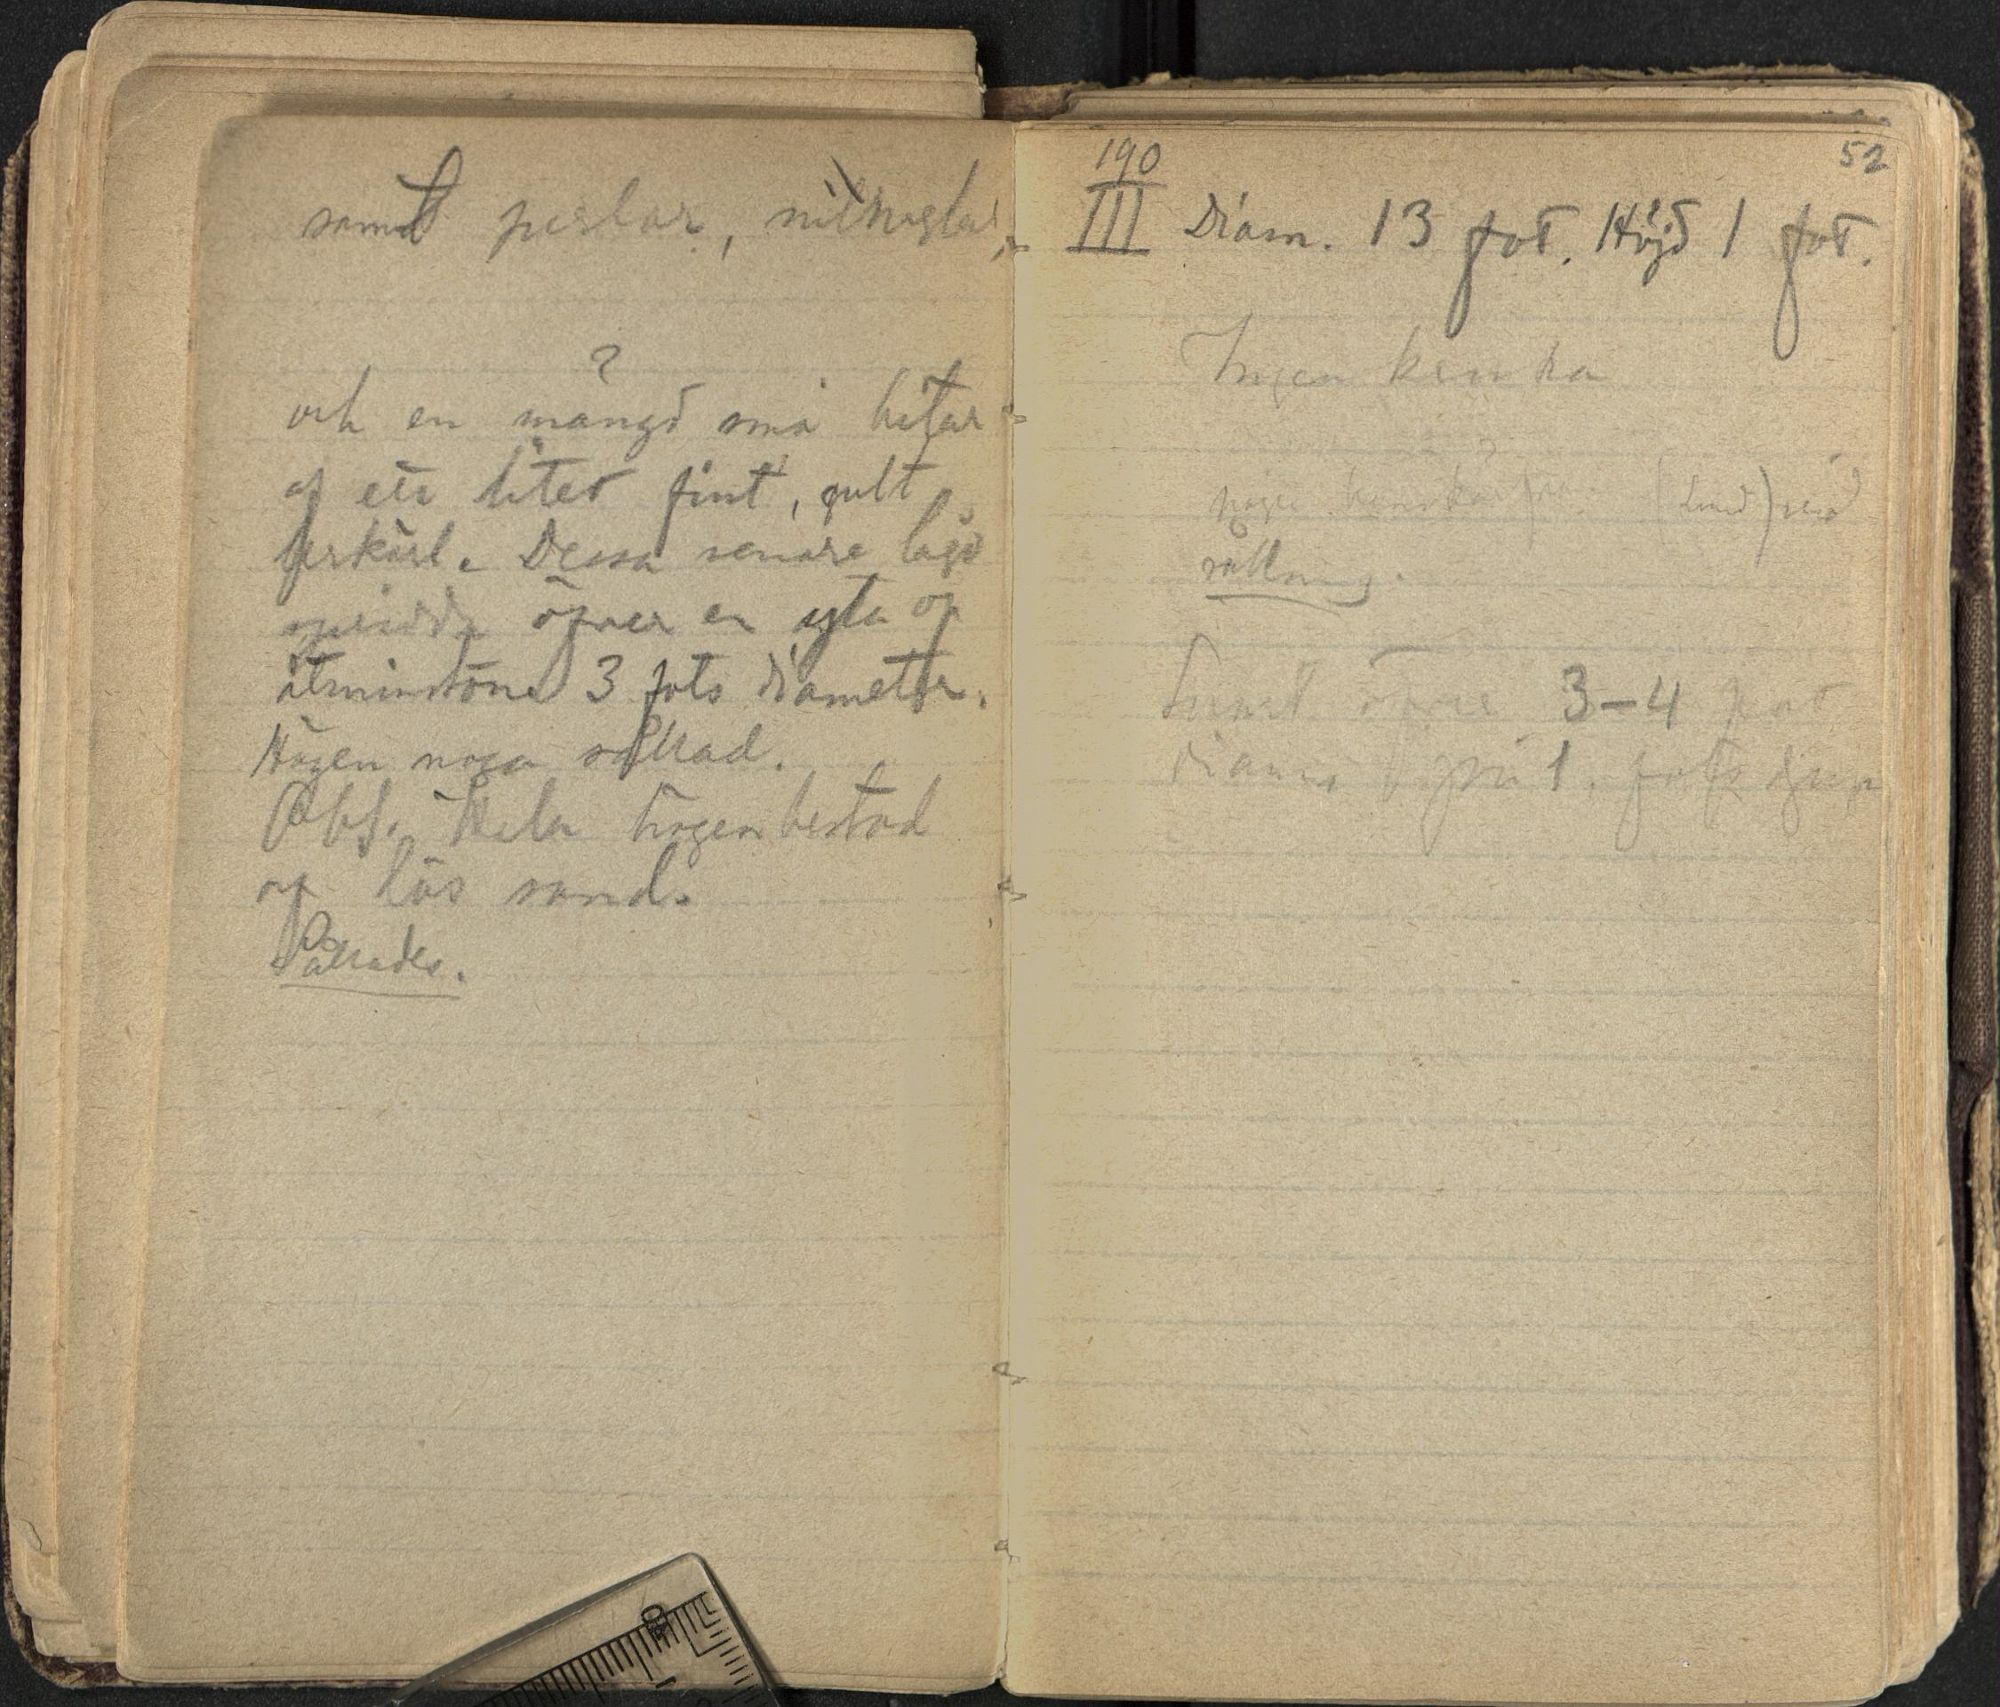 samt perlar, nitnaglar,
och en mängd små bitar
af ett litet fint, gult
lerkärl. Dessa senare lågo
spridda öfver en yta af
åtminstone 3 fots diameter.
Högen noga sållad.
Obs. Hela högen bestod
af lös sand.
Sållades.
52
190
III Diam. 13 fot. Höjd 1 fot.
Ingen kruka
(Lind) vid
sållning.
öfver 3-4 fot
diam. 1 fots djup